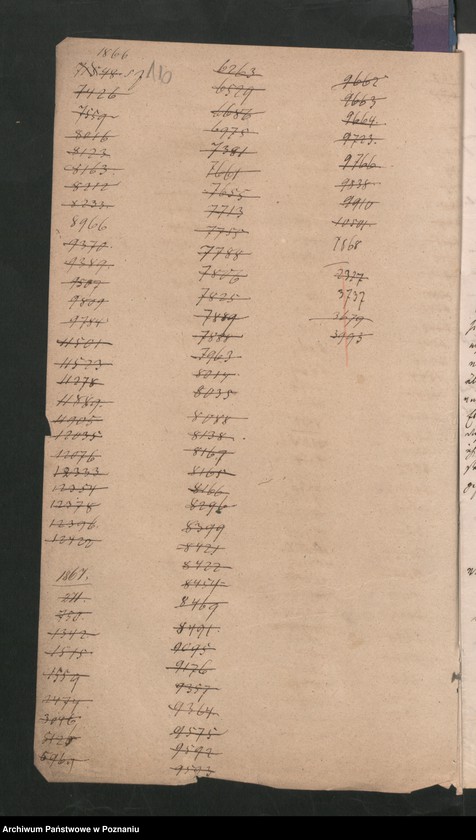 1866
7426
7559
8016
8123
8163
8212
8233
8966
9370
9389
9507
9809
9784
11501
11523
11378
11889
11905
12035
12076
12333
12354
12378
12396
12422
1867.
211.
250.
1342
1515
1559
2474
3046
5128
6263
6529
6686
6975
7381
7661
7655
7713
7755
7788
7806
7825
7889
7888
7963
8014
8035
8088
8138
8169
8165
8166
8296
8399
8421
8422
8454
8469
8491
9045
9176
9357
9364
9575
9592
9593
9662
9663
9664
9723
9766
9838
9910
10801
7868
2327
3737
3679
3993
Archiwum Państwowe w Poznaniu